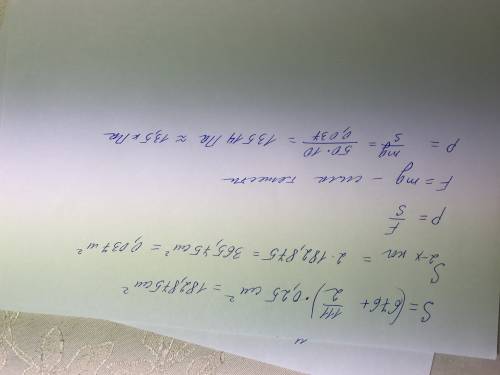 S = (676 + 111/2) · 0,25 см² = 182,875 см²
S 2-х ног = 2 · 182,875 = 365,75 см² = 0,037 м²
p = F/S
F = mg – сила тяжести
p = mg/S = 50·10/0,037 = 13514 Па ≈ 13,5 кПа